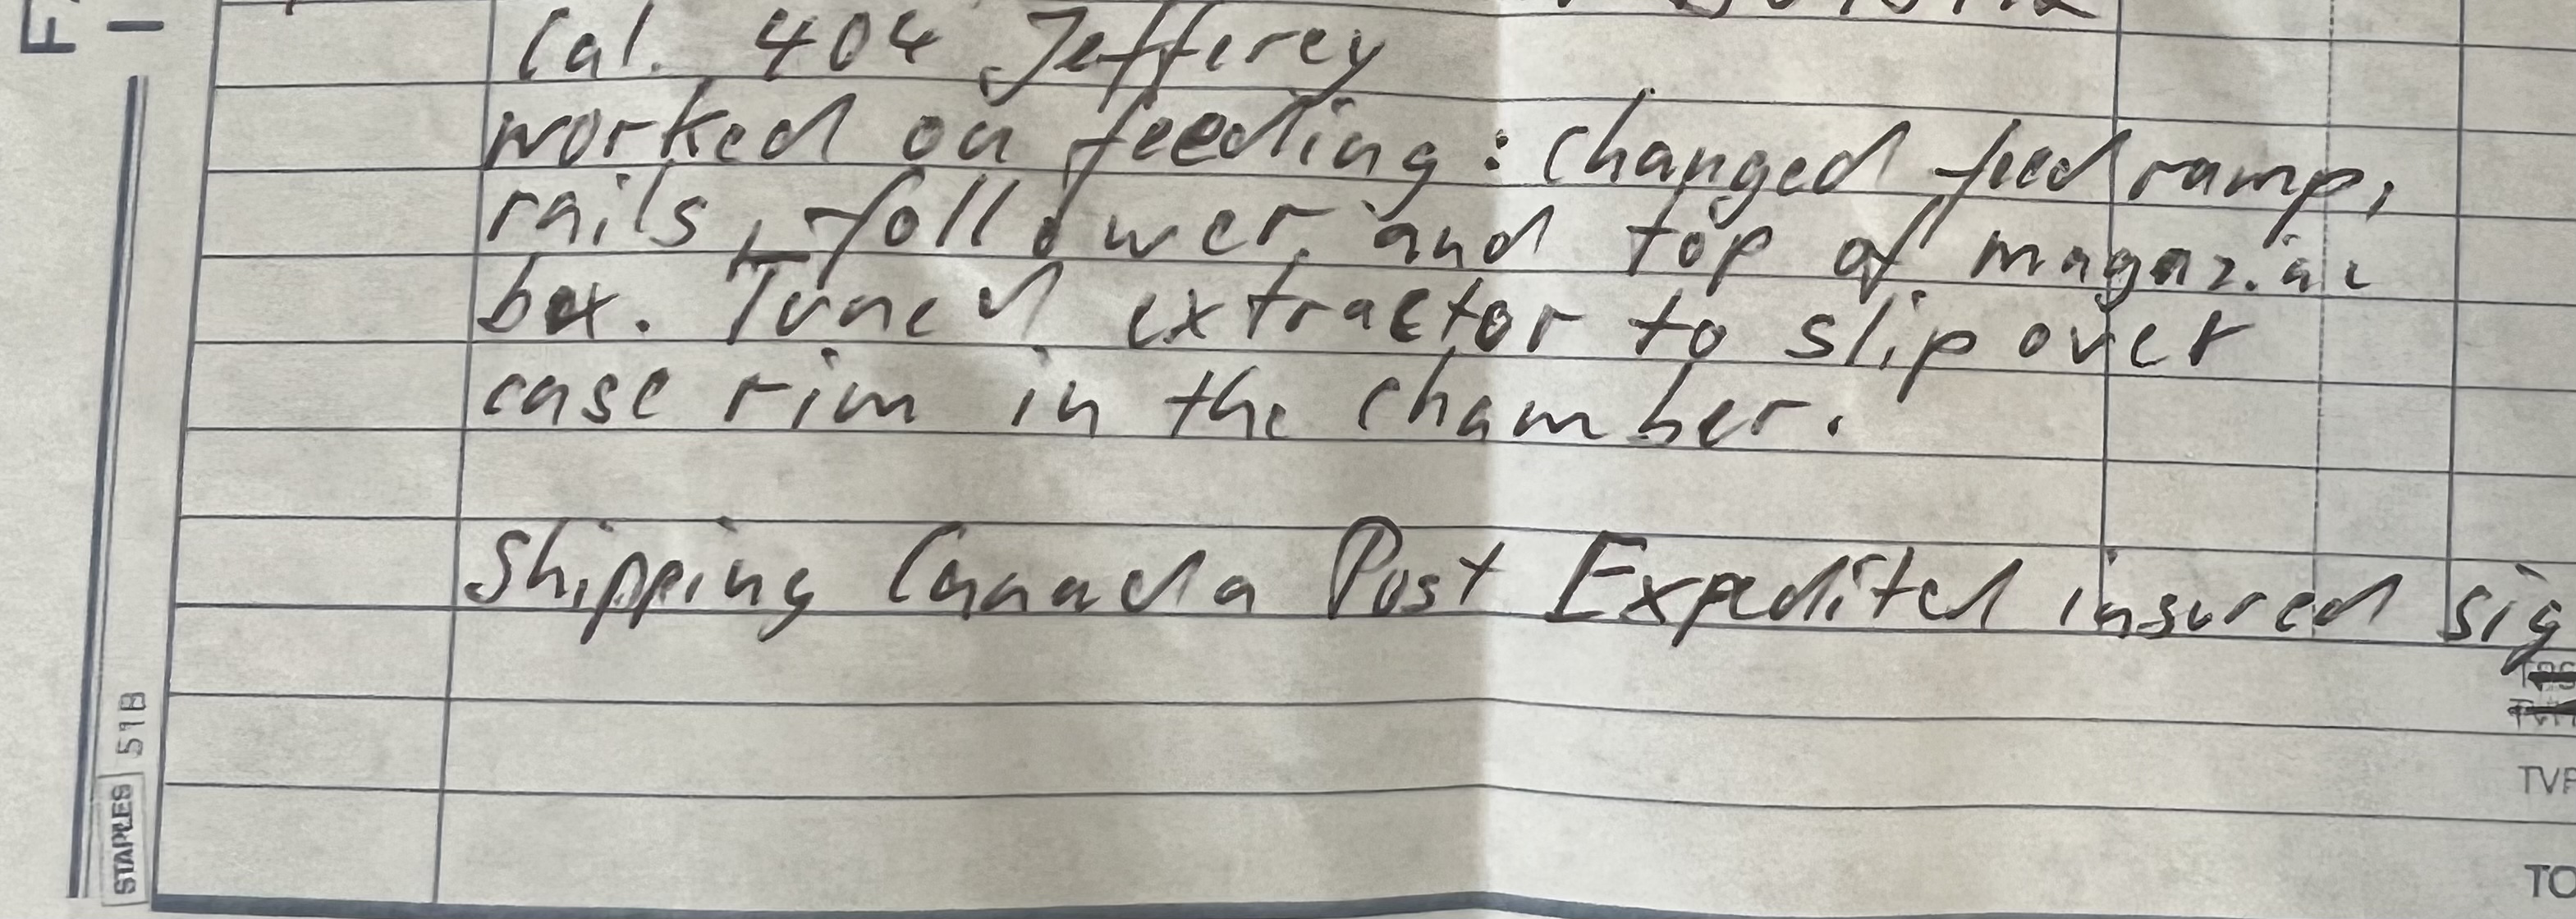 Cal. 404 Jefferey
worked on feeding : changed feed ramp,
rails, follower, and top of magazine
box. Tuned extractor to slip over
case rim in the chamber.
Shipping Canada Post Expedited insured sig
TVP
TO
STAPLES 51B